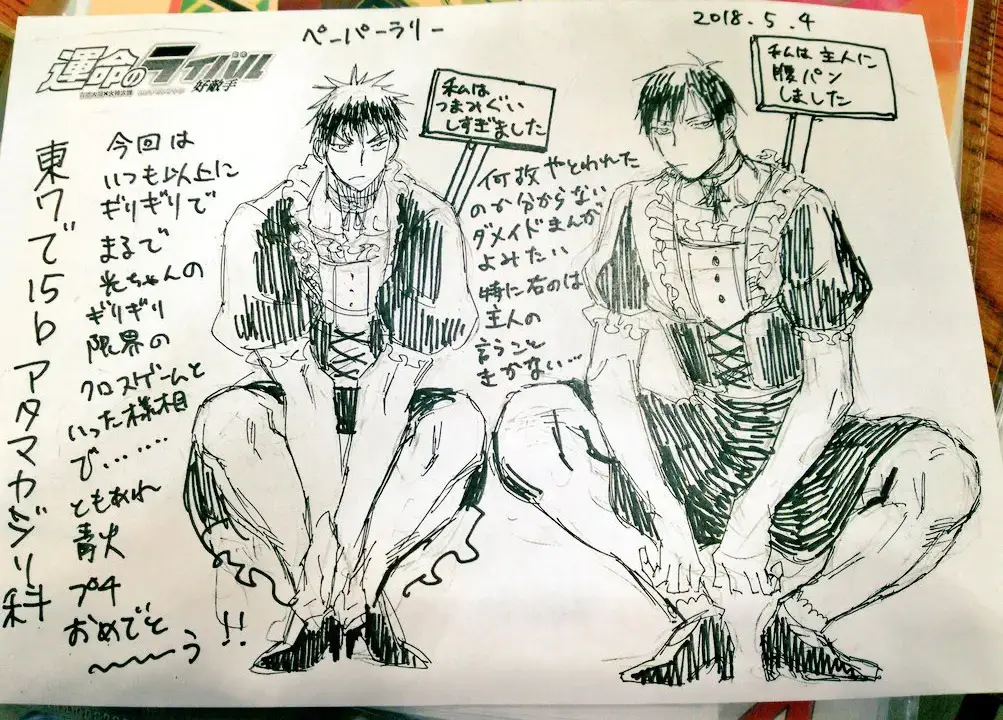 ペーパーラリー
2018.5.4
運命のライバル
好敵手
私は
つまみぐい
しすぎました
私は主人に
腹パン
しました
何故やとわれた
のか分からない
ダメイドまんが
よみたい
特に右のは
主人の
言うこと
きかない…
今回は
いつも以上に
ギリギリで
まるで
光ちゃんの
ギリギリ
限界の
クロスゲームと
いった様相
で………
ともあれ
青火
プチ
おめでと
〜〜〜う!!
東ワで15b アタマカジリ科